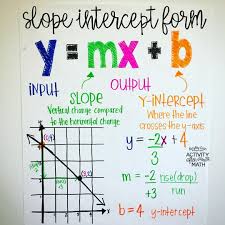 slope intercept form
y=mx+b
INPUT OUTPUT
SLOPE
Vertical change compared
to the horizontal change
y-intercept
Where the line
crosses the y-axis
y = -2x + 4
3
m = -2 rise(drop)
+3 run
b=4 y-intercept
ACTIVITY
MATH